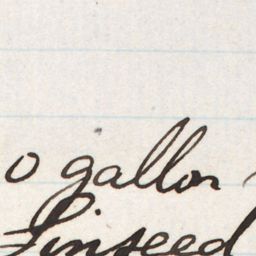 0 gallon
Linseed